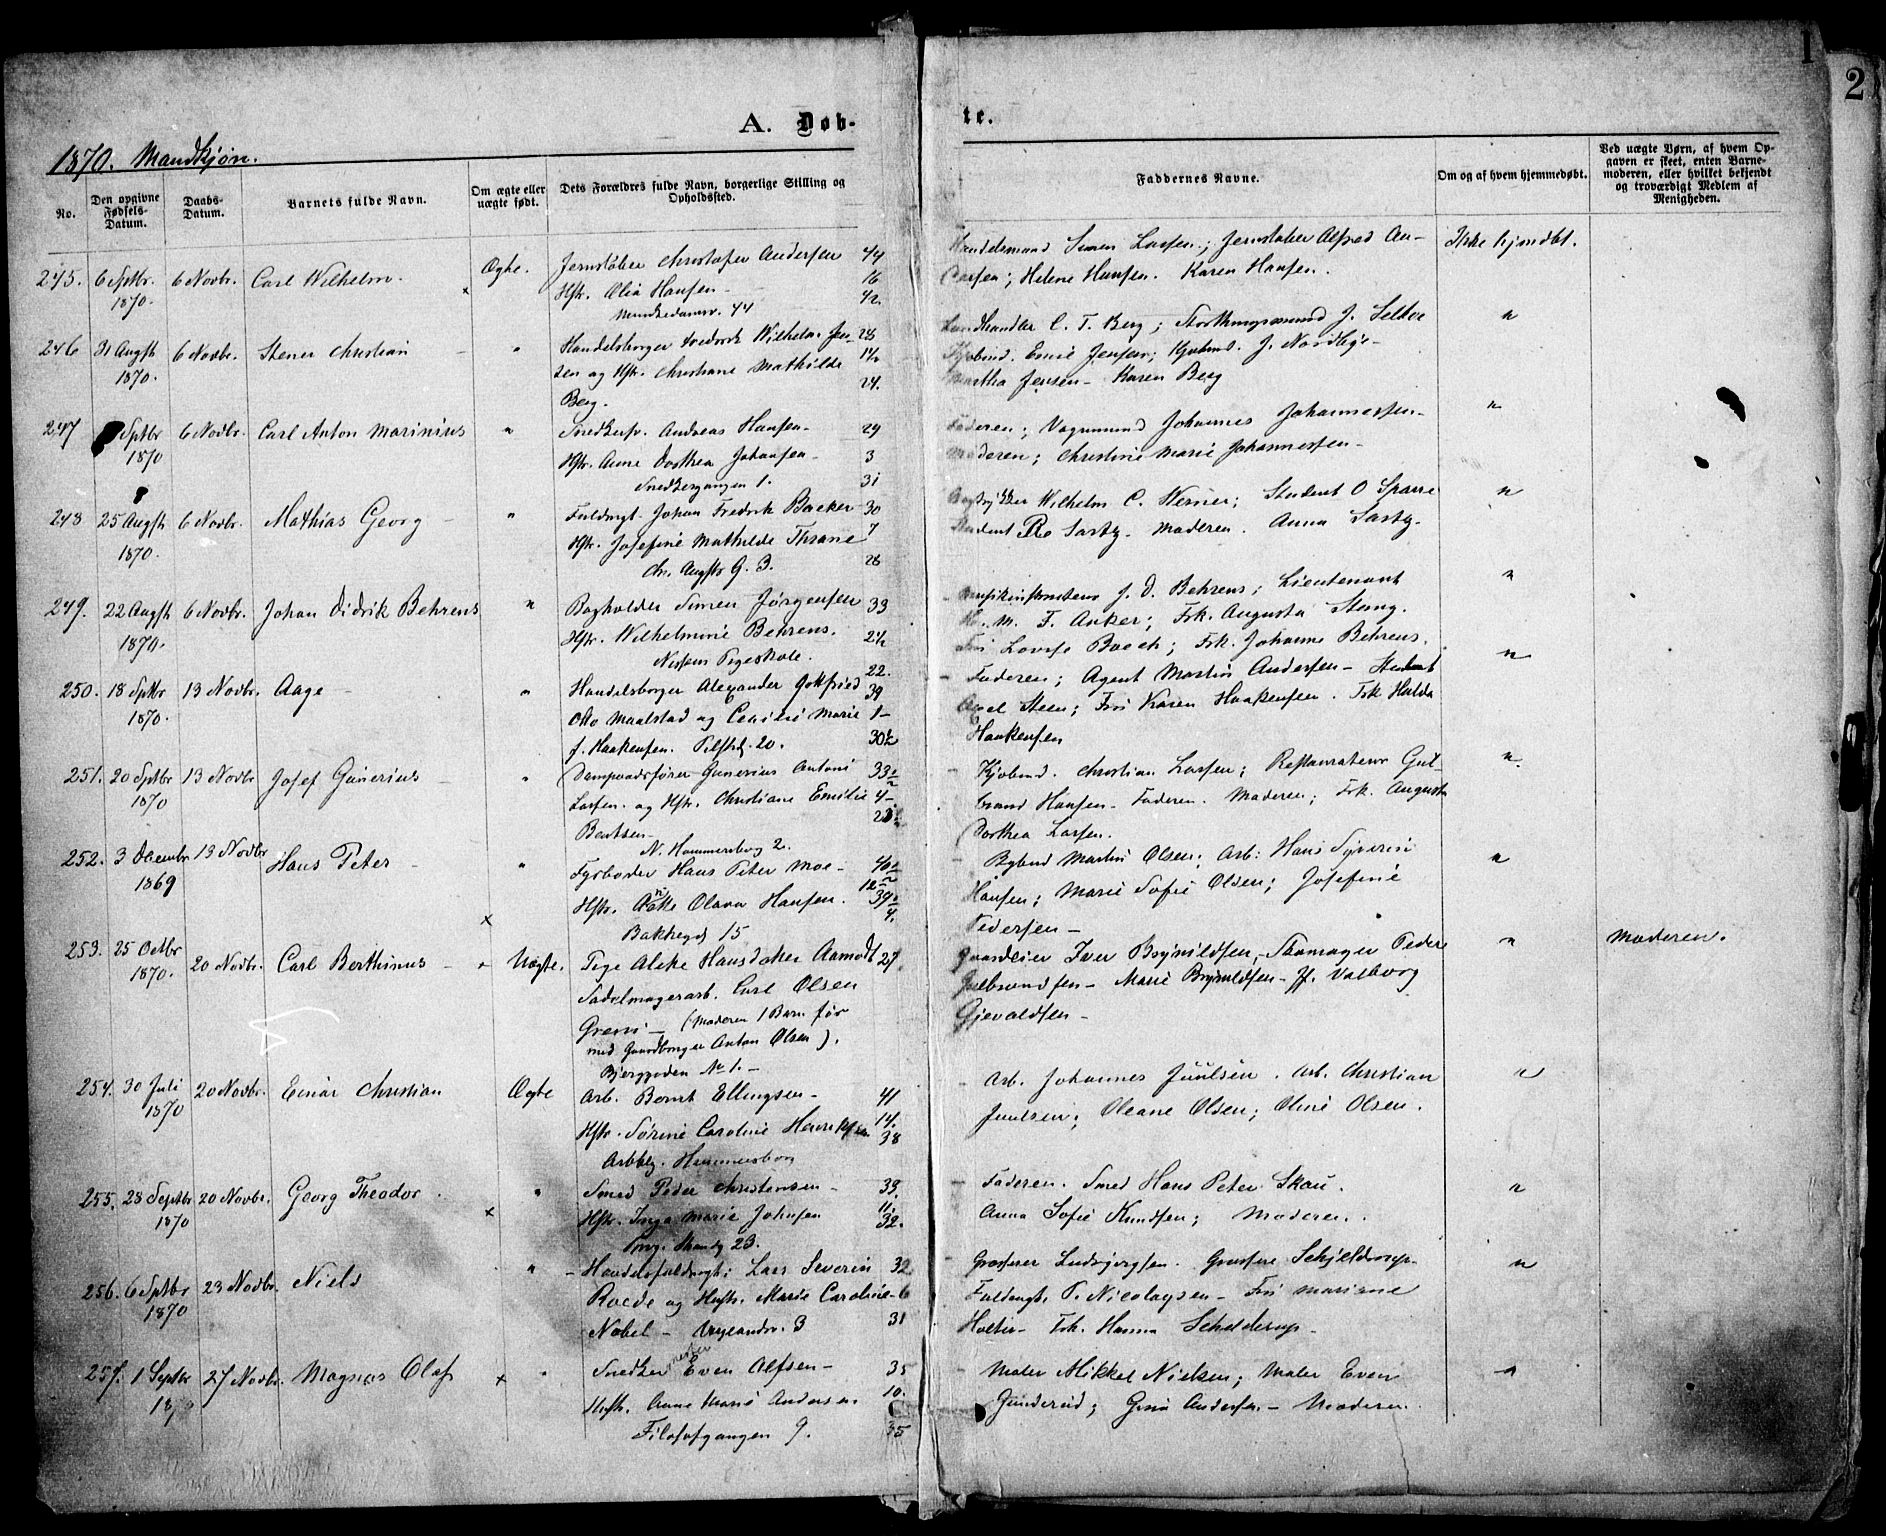 1
2
A. Døb-
te.
1870. Mandkjøn.
No.
Den opgivne Fødsels-Datum.
Daabs-Datum.
Barnets fulde Navn.
Om ægte eller uægte født.
Dets Forældres fulde Navn, borgerlige Stilling og Opholdssted.
Faddernes Navne.
Om og af hvem hjemmedøbt.
Ved uægte Børn, af hvem Opgaven er skeet, enten Barnemoderen, eller hvilket bekjendt og troværdigt Medlem af Menigheden.
245. 6 Septbr. 1870. 6 Novbr. Carl Wilhelm. Ægte.
Jernstøber Christofer Andersen 44
Hstr. Olia Hansen 16
Munkedamsv. 44 42.
Handelsmand Simen Larsen; Jernstøber Alfred
Larsen; Helene Hansen. Karen Hansen.
Ikke hjmdbt.
246 31 Augst 1870. 6 Novbr. Stener Christian "
Handelsborger Fredrik Wilhelm Jen- 28
sen og Hstr. Christiane Mathilde
Berg. 24.
Landhandler C. T. Berg; Storthingsmand J.
Kjøbmd. Jensen; Kjøbmd. J.
Martha Jensen - Karen Berg
"
247 Septbr 1870 6 Novbr. Carl Anton Marinius "
Snedkersv. Andreas Hansen- 29
Hstr. Anne Dorthea Johansen 3
Snedkergangen 1. 31
Faderen; Vognmand Johannes Johannessen-
Moderen; Christine Marie Johannessen-
"
248 25 Augst 1870. 6 Novbr. Mathias Georg - "
Fuldmgt. Johan Fredrik Backer 30
Hstr. Josefine Mathilde Thrane 7
Chr. Augsts G. 3. 28
Wilhelm C. Werner; Student O Sparre
Student Moderen. Anna
"
249. 22 Augst 1870. 6 Novbr. Johan Didrik Behrens "
Bogholder Simen Jørgensen 33
Hstr. Wilhelmine Behrens.
Nissens Pigeskole. 22.
J. D. Behrens; Lieutenant
H. M. F. Anker; Frk. Augusta Stang.
Fru Lovise Frk. Johanne Behrens.
"
250. 18 Septbr 1870. 13 Novbr. Aage - "
Handelsborger Alexander Gotfried 39
Otto Maalstad og Cecilie Marie 1-
f. Haakensen. Pilestd. 20. 30½
Faderen; Agent Martin Andersen - Student
Axel Steen; Fru Karen Haakensen. Frk Hulda
Haakensen
"
251. 20 Septbr 1870 13 Novbr Josef Gunerius - "
Gunerius Antoni 33
Larsen. og Hstr. Christiane Emilie 4-
Bentsen-
N. Hammersborg 2.
Kjøbmd. Christian Larsen; Restauratør Gul-
brand Hansen - Faderen. Moderen; Frk. Augusta
Dorthea Larsen.
"
252. 3 Decembr 1869 13 Novbr Hans Peter - "
Fyrbøder Hans Peter Moe -
Hstr. Olava Hansen.
Bakkegd 15
Martin Olsen; Arb. Hans
Hansen; Marie Sofie Olsen; Josefine
Pedersen -
"
253. 25 Octbr 1870. 20 Novbr. Carl Berthinus - Uægte.
Pige Hansdatter Aamodt 27.
Sadelmagerarb. Carl Olsen
(Moderen 1 Barn før
med Gaardborger Anton Olsen).
Bjerggaden No 1. -
Gaardeier Iver Brynildsen, Peder
Gulbrandsen - Marie Brynildsen - Jf. Valborg
Gjevaldsen -
"
Moderen.
254. 30 Juli 1870 20 Novbr. Einar Christian Ægte
Arb. Bernt Ellingsen - 41
Hstr. Sørine Caroline Henriksen 14.
Arbblg. Hammersborg 38
Arb. Johannes Juulsen. Arb. Christian
Juulsen; Oleane Olsen; Oline Olsen.
"
255. 28 Septbr 1870 20 Novbr. Georg Theodor. "
Smed Peder Christensen - 33.
Hstr. Inga Marie Johnsen 11.
23. 32.
Faderen. Smed Hans Peter Skau.
Anna Sofie Knudsen; Moderen.
"
256. 6 Septbr 1870 23 Novbr. Niels "
Handelsfuldmgt: Lars Severin 32
Roede og Hustr. Marie Caroline 6
Nobel - 3 31
Grosserer Grosserer Schjelderup-
Fuldmgt. P. Nicolaysen - Fru Mariane
Holter - Frk. Hanna Schelderup-
"
257. 1 Septbr 27 Novbr. Magnus Olaf "
Snedkermester Even Alfsen - 35
Hustr. Anne Marie Andersen 10.
Filosofgangen 9. 35
Maler Mikkel Nielsen; Maler Even
Gunderud; Andersen - Moderen.
"